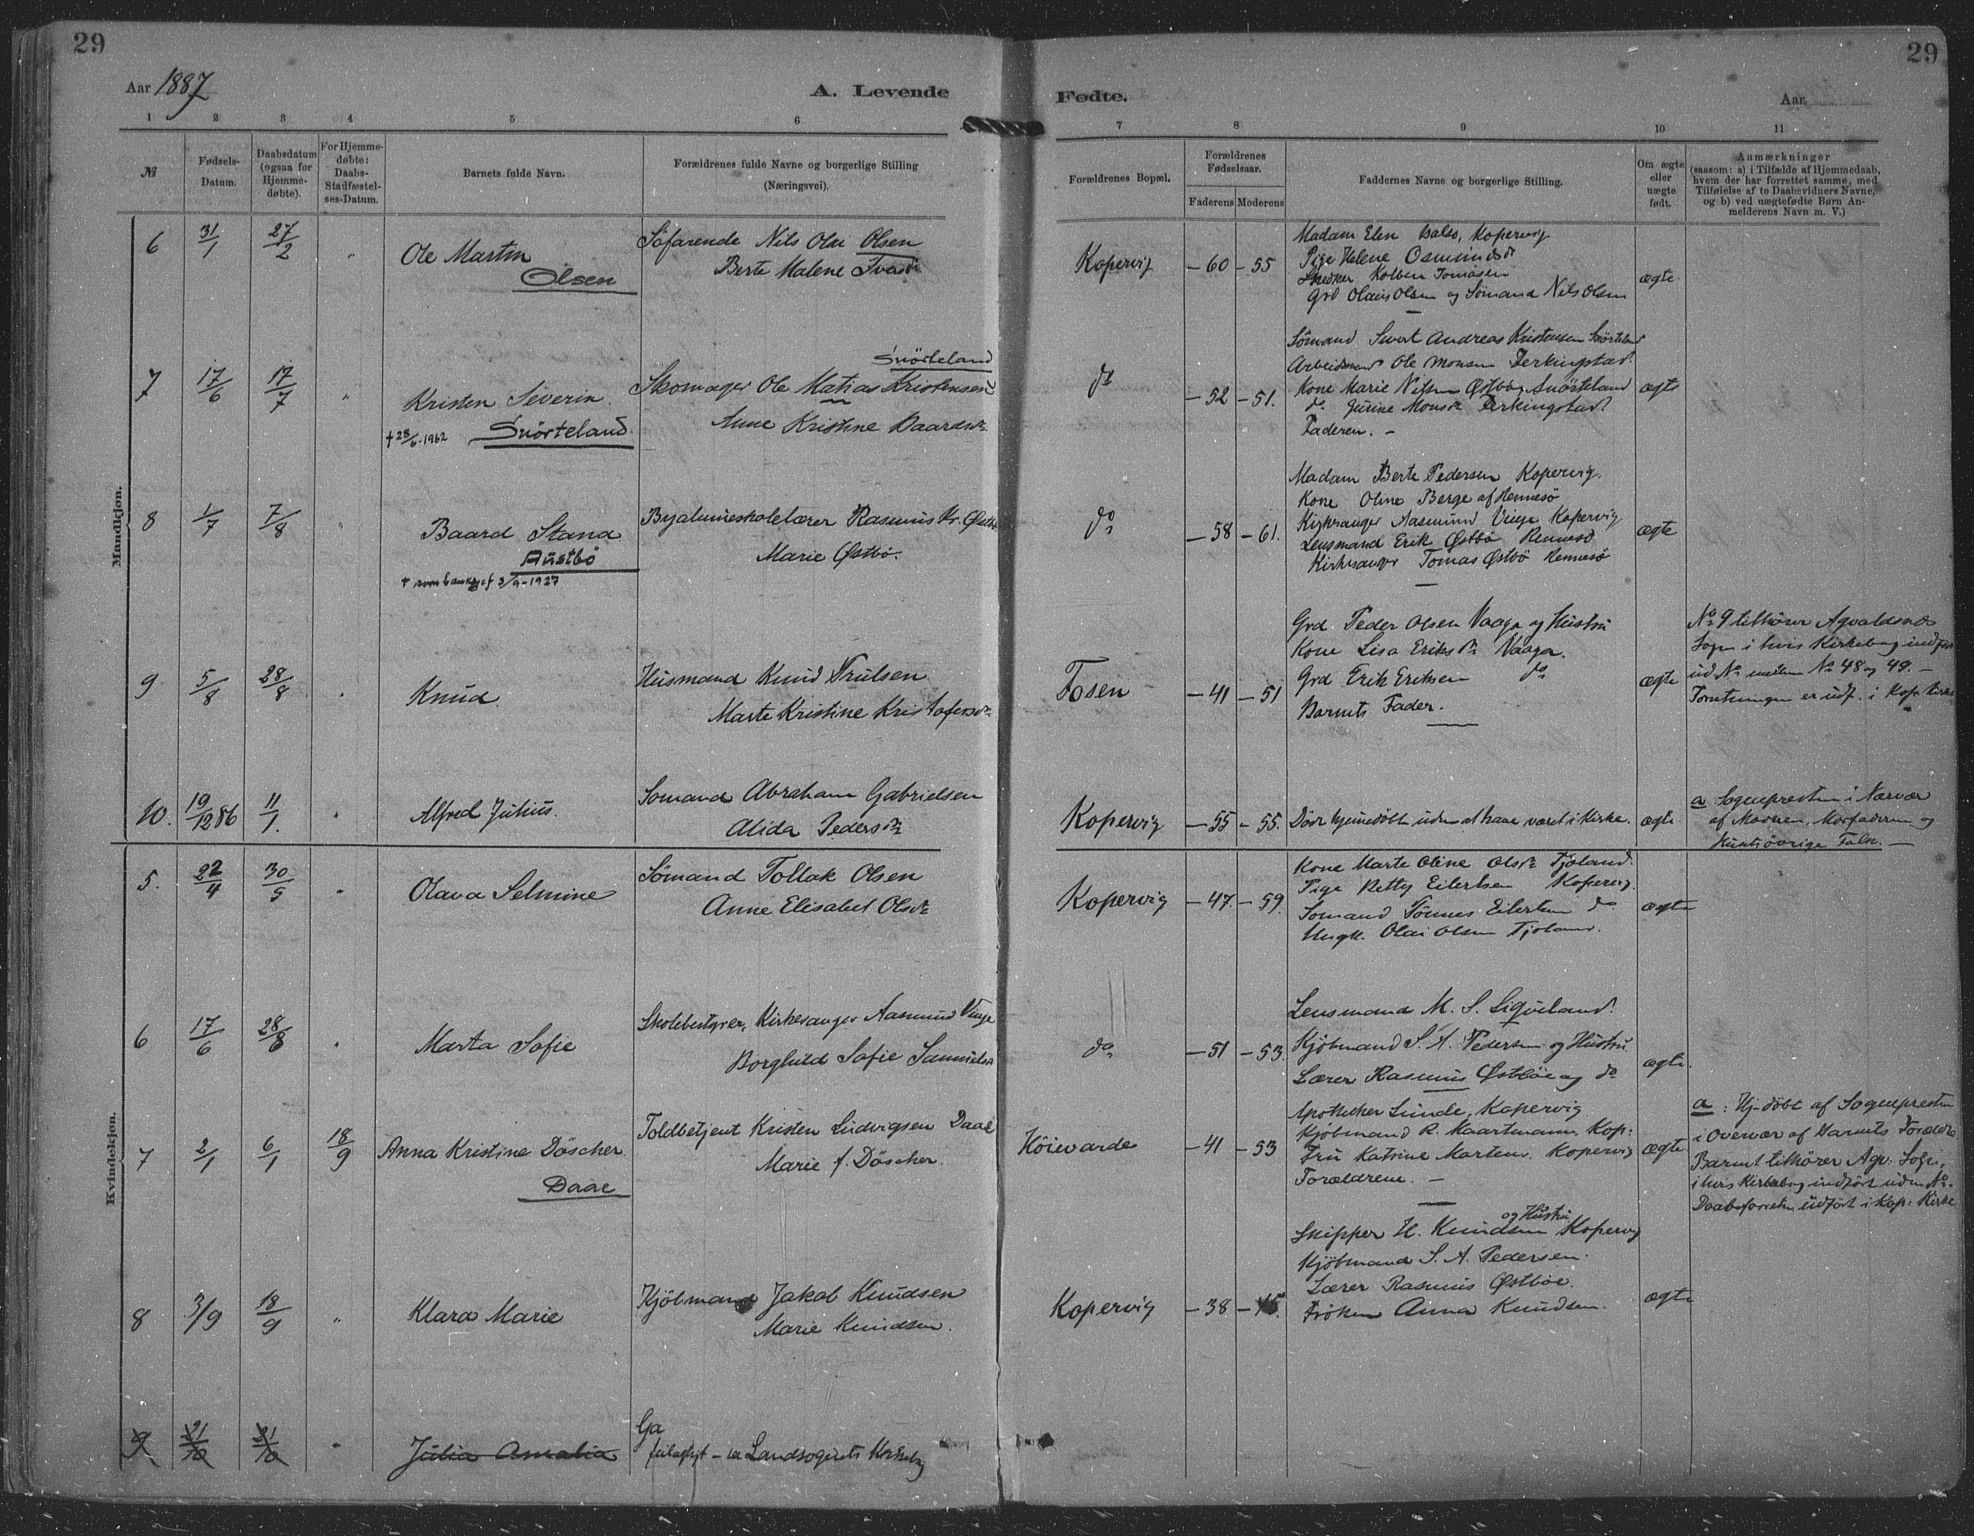 29
29
Aar 1887
A. Levende
Fødte.
Aar
1 2 3 4 5 6 7 8 9 10 11
№
Fødsels-
Datum.
Daabsdatum
(ogsaa for
Hjemme-
døbte).
For Hjemme-
døbte:
Daabs-
Stadfæstel-
ses-Datum.
Barnets fulde Navn.
Forældrenes fulde Navne og borgerlige Stilling
(Næringsvei).
Forældrenes Bopæl.
Forældrenes
Fødselsaar.
Faderens Moderens
Faddernes Navne og borgerlige Stilling.
Om ægte
eller
uægte
født.
Anmærkninger
(saasom: a) i Tilfælde af Hjemmedaab,
hvem der har forrettet samme, med
Tilføielse af to Daabsvidners Navne,
og b) ved uægtefødte Børn An-
melderens Navn m. V.)
Mandkjøn.
6 31/1 27/2 "
Ole Martin
Olsen
Søfarende Nils Olai Olsen
Berte Malene
Kopervig -60 -55
Madam Elen Kopervig
Pige Helene Osmundsdr
Snedker Kolben Tomasen
Grd Olaus Olsen og Sømand Nils Olsen
ægte
7 17/6 17/7 "
Kristen Severin
Snørteland
+ 28/6-1962
Snørteland
Skomager Ole Matias Kristensen
Anne Kristine Baardsdr.
do -52 -51.
Sømand Sivert Andreas Kristensen Snørteland
Arbeidsmand Ole Monsen Ferkingstad
Kone Marie Nilsen Østbø, Snørteland
do Gurine Monsdr Ferkingstad
Faderen. -
ægte
8 1/7 7/8 "
Baard Stana
Austbø
3/9-1927
Byalmueskolelærer Rasmus Kr. Østbø
Marie Østbø.
do -58 -61.
Madam Berte Pedersen Kopervig.
Kone Oline Berge af Hennesø
Kirkesanger Aasmund Vinje Kopervig
Lensmand Erik Østbø Hennesø
Kirkesanger Tomas Østbø Hennesø
ægte
9 5/8 28/8 "
Knud
Husmand Knud Trulsen
Marte Kristine Kristofersdr.
Fosen -41 -51
Grd Peder Olsen Vaaga og Hustru
Kone Lisa Eriksdr. Vaaga.
Grd Erik Eriksen do
Barnets Fader.
ægte
No 9 tilhører Agvaldsnes
Sogn i hvis Kirkebog indført
ud No mellem No 48 og 49. -
Forretningen er udf. i Kop. Kirke
10. 19/12 86 11/1. "
Alfred Julius.
Sømand Abraham Gabrielsen
Alida Pedersdr.
Kopervig -55 -55.
Død hjemmedøbt uden at have været i Kirke.
ægte
a Sognepresten i Nærvær
af Moderen, Morfaderen og
Kvindekjøn.
5. 22/4 30/5 "
Olava Selmine
Sømand Tollak Olsen
Anne Elisabet Olsdr.
Kopervig -47. -59.
Kone Marte Oline Olsdr. Tjoland.
Pige Betty Eilertsen Kopervig.
Sømand Tønnes Eilertsen do
Ungk. Olai Olsen Tjoland.
ægte
6 17/6 28/8 "
Marta Sofie
Skolebestyrer, Kirkesanger Aasmund Vinje
Borghild Sofie Samuelsdr.
do -51 -53.
Lensmand M. S. Ligveland.
Kjøbmand S. A. Pedersen og Hustru
Lærer Rasmus Østbøe og do
ægte.
7 2/1 6/1 18/9
Anna Kristine Döscher
Daae
Toldbetjent Kristen Ludvigsen Daae
Marie f. Döscher.
Høievarde -41 -53
Apotheker Lunde, Kopervig
Kjøbmand R. Maartmann, Kop:
Fru Katrine Martens Kopervig
Forældrene. -
ægte
a: Hj-døbt af Sognepresten
i Overvær af Barnets Forældre
Barnet tilhører Agv. Sogn,
i hvis Kirkebog indført uden No.
Daabsforretn. udført i Kop: Kirke
8 3/9 18/9 "
Klara Marie
Kjøbmand Jakob Knudsen
Marie Knudsen.
Kopervig -38 -45.
og Hustru
Skipper H. Knudsen Kopervig
Kjøbmand S. A. Pedersen.
Lærer Rasmus Østbøe.
Frøken Anna Knudsen.
ægte
9 21/10 "
Julia Amalia
Ga
- i Landsognets Kirkebog